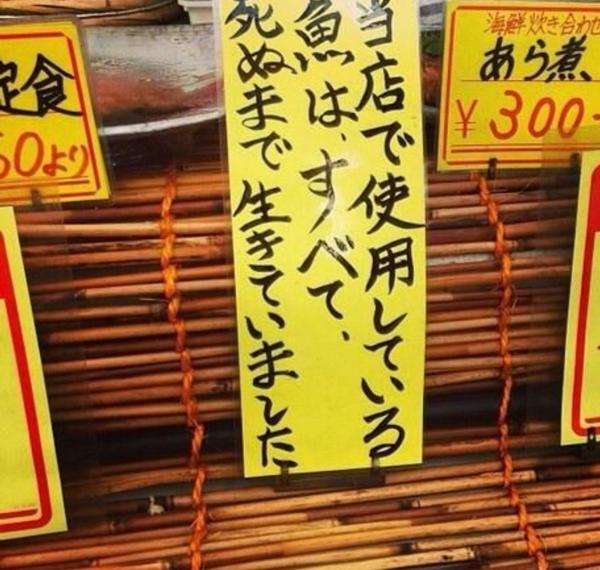 当店で使用している
魚は、すべて、
死ぬまで生きていました
海鮮炊き合わせ
あら煮、
¥300-
定食
50より